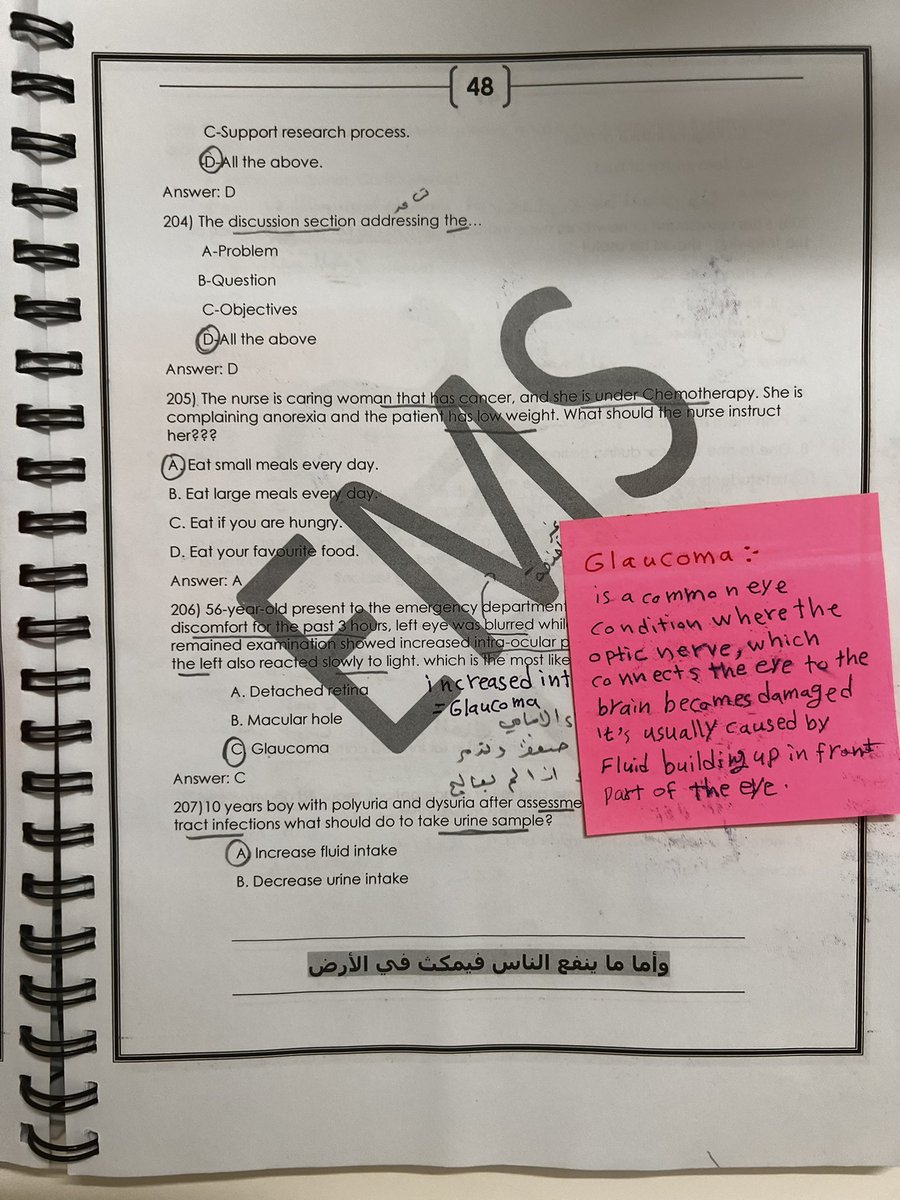 48
C-Support research process.
D-All the above.
Answer: D
204) The discussion section addressing the...
A-Problem
B-Question
C-Objectives
D-All the above
Answer: D
205) The nurse is caring woman that has cancer, and she is under Chemotherapy. She is
complaining anorexia and the patient has low weight. What should the nurse instruct
her???
A. Eat small meals every day.
B. Eat large meals every day.
C. Eat if you are hungry.
D. Eat your favourite food.
Answer: A
206) 56-year-old present to the emergency department
discomfort for the past 3 hours, left eye was blurred whil
remained examination showed increased intra-ocular p
the left also reacted slowly to light. which is the most like
A. Detached retina
increased int
B. Macular hole
= Glaucoma
C. Glaucoma
اذا لم يعالج
Answer: C
207)10 years boy with polyuria and dysuria after assessme
tract infections what should do to take urine sample?
A. Increase fluid intake
B. Decrease urine intake
وأما ما ينفع الناس فيمكث في الأرض
EMS
Glaucoma :-
is a common eye
condition where the
optic nerve, which
connects the eye to the
brain becomes damaged
it's usually caused by
Fluid building up in front
part of the eye.